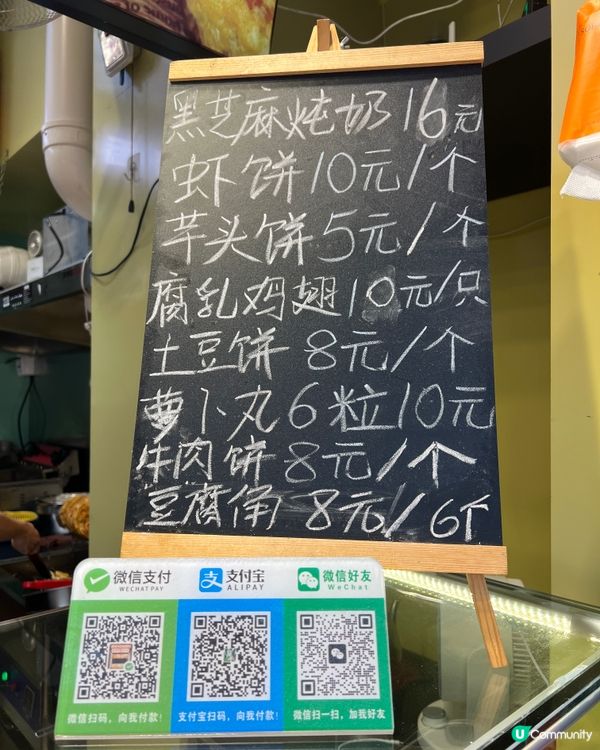 黑芝麻炖奶16元
虾饼10元/个
芋头饼5元/个
腐乳鸡翅10元/只
土豆饼 8元/个
萝卜丸6粒10元
牛肉饼 8元/个
豆腐角 8元/6个
微信支付
WECHAT PAY
支付宝
ALIPAY
微信好友
WeChat
微信扫码，向我付款！
支付宝扫码，向我付款！
微信扫一扫，加我好友
U Community